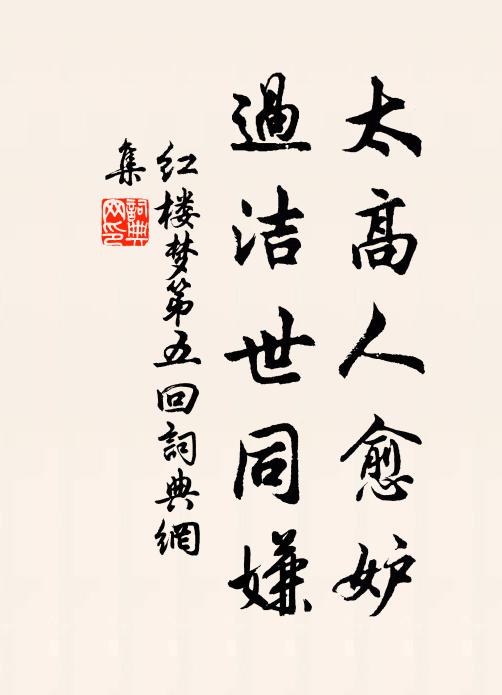 太高人愈妒
過洁世同嫌
红楼梦第五回詞典網
集
詞典
网印